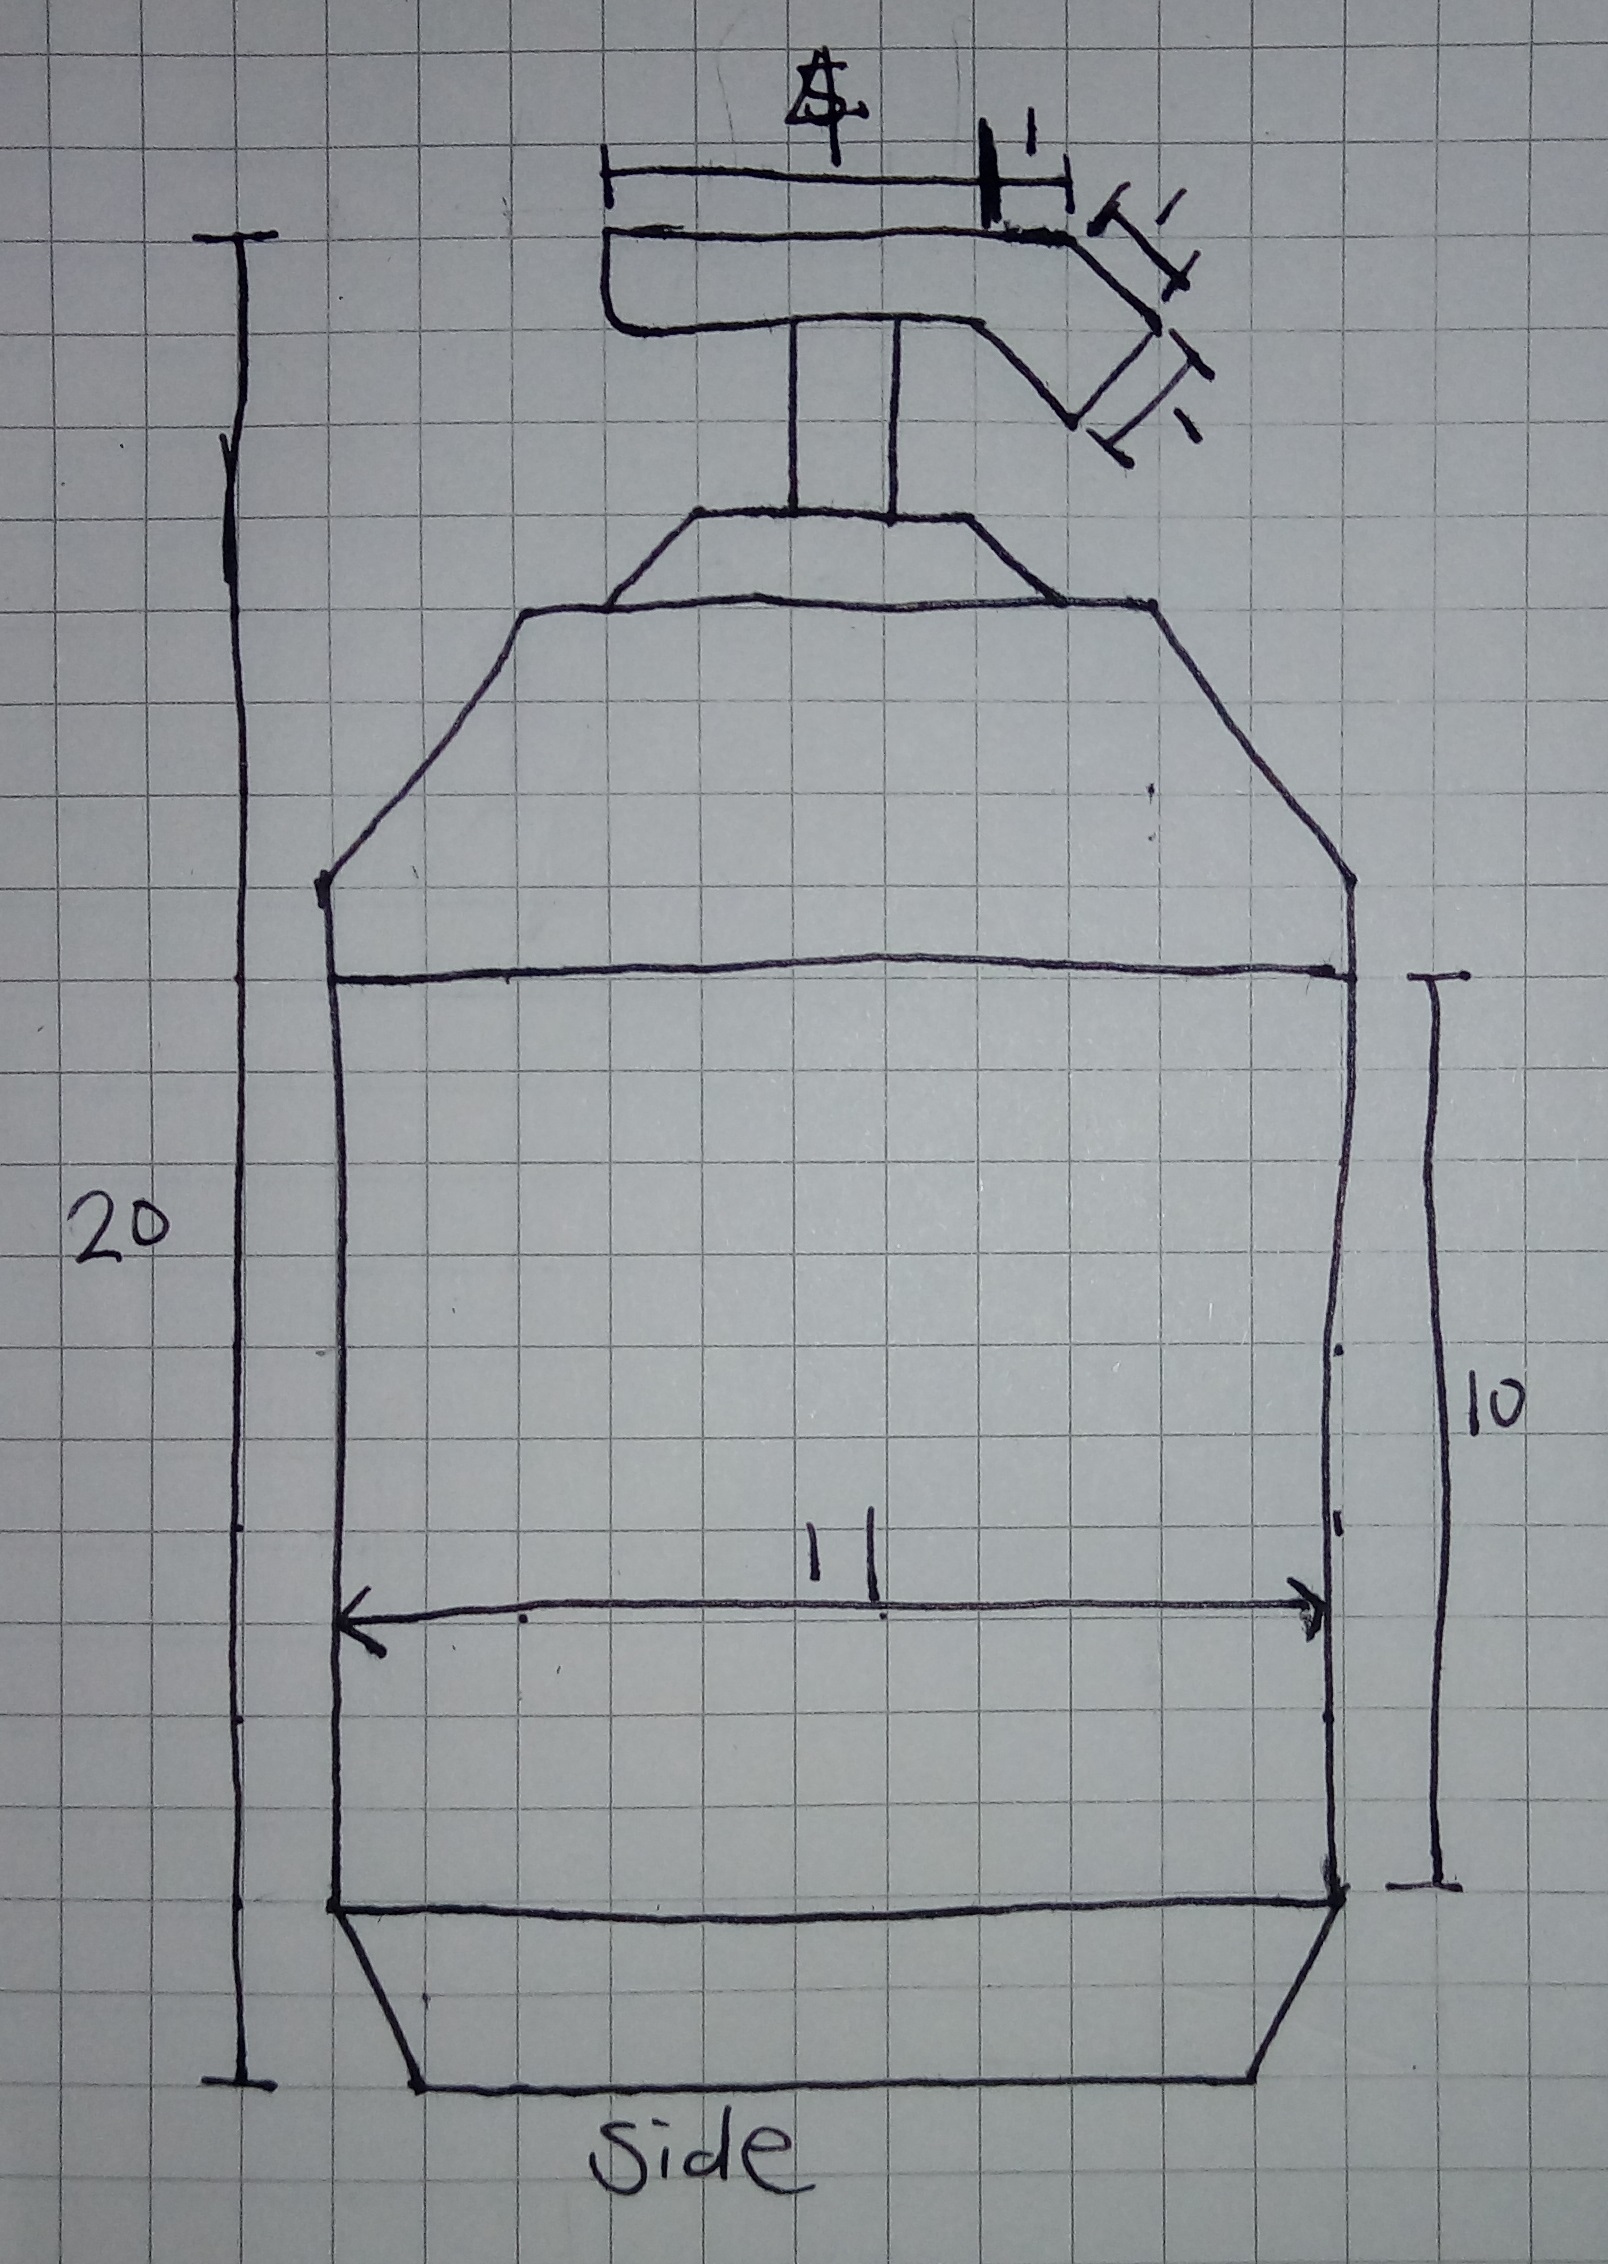 4
1
1
1
20
10
11
Side